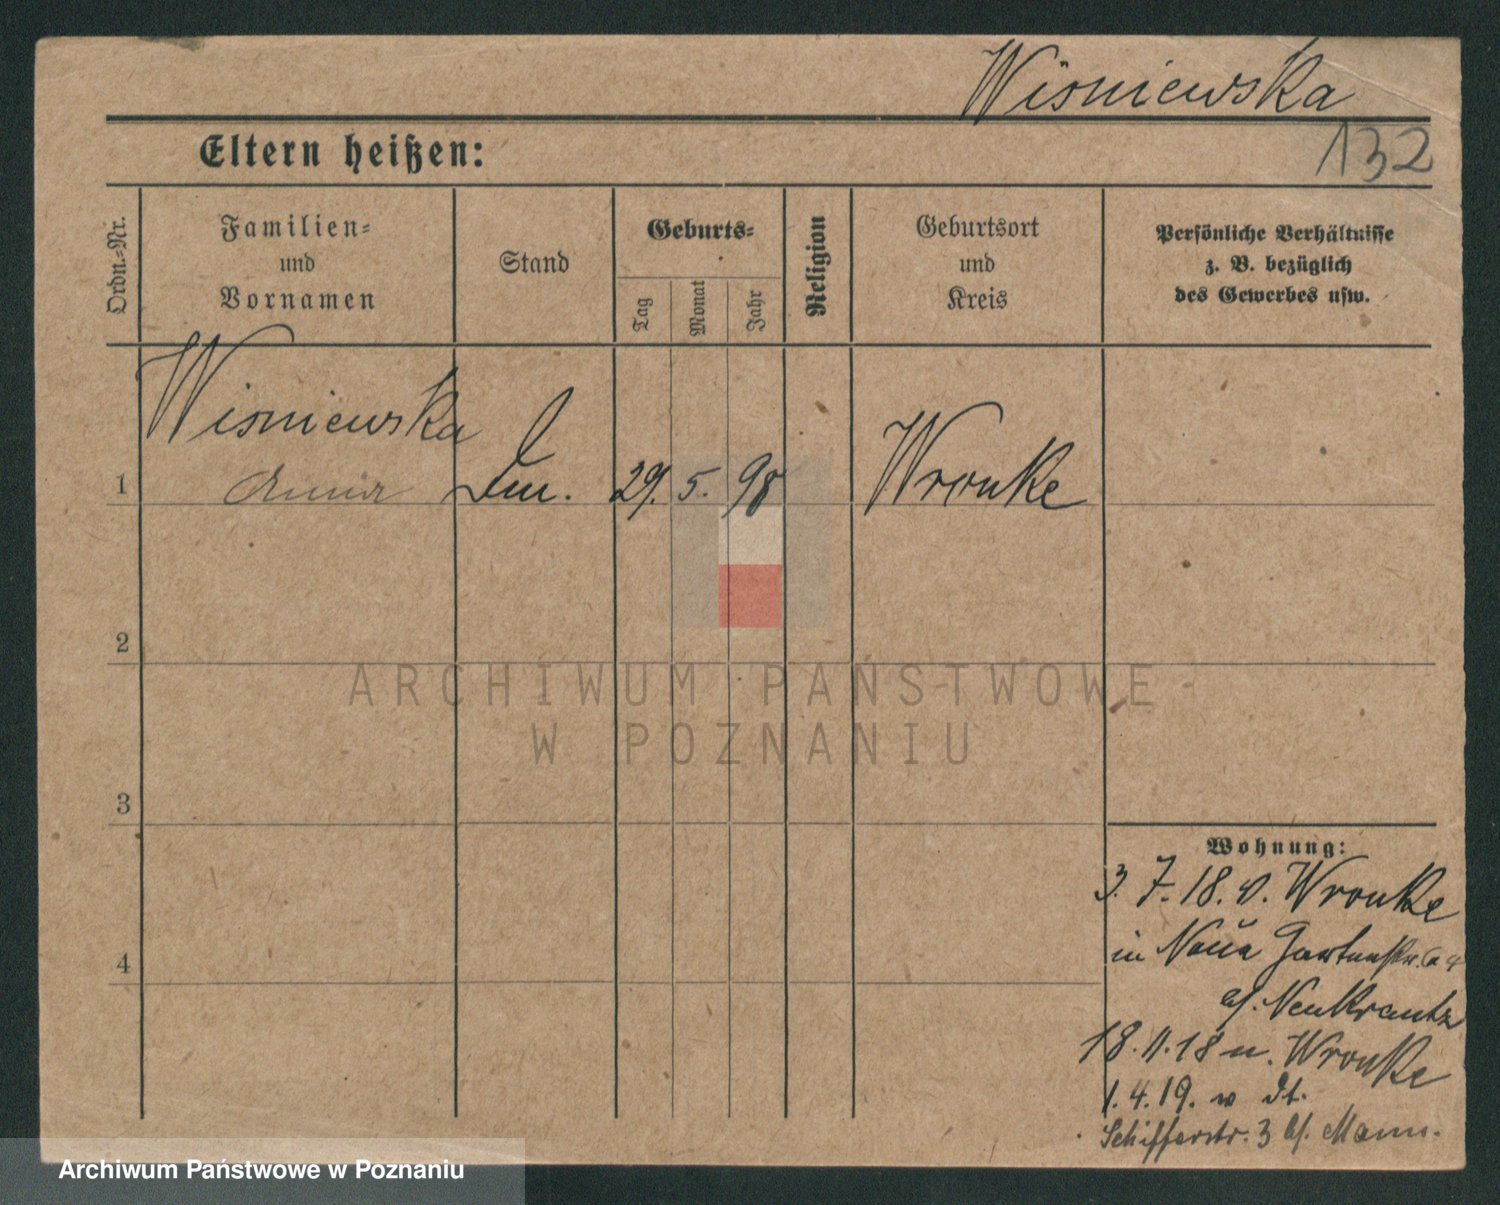 Wisniewska
132
Eltern heißen:
Ordn.-Nr.
Familien-
und
Vornamen
Stand
Geburts-
Tag
Monat
Jahr
Religion
Geburtsort
und
Kreis
Persönliche Verhältnisse
z. B. bezüglich
des Gewerbes usw.
Wisniewska
1 29. 5. 98 Wronke
2
ARCHIWUM PAŃSTWOWE
W POZNANIU
3
Wohnung:
3. 7. 18. v. Wronke
in Neue Gartenstr.
b/. Neukrantz
4
18. 11. 18 n. Wronke
1. 4. 19. v dt.
Schifferstr. 3 b/. Mann.
Archiwum Państwowe w Poznaniu